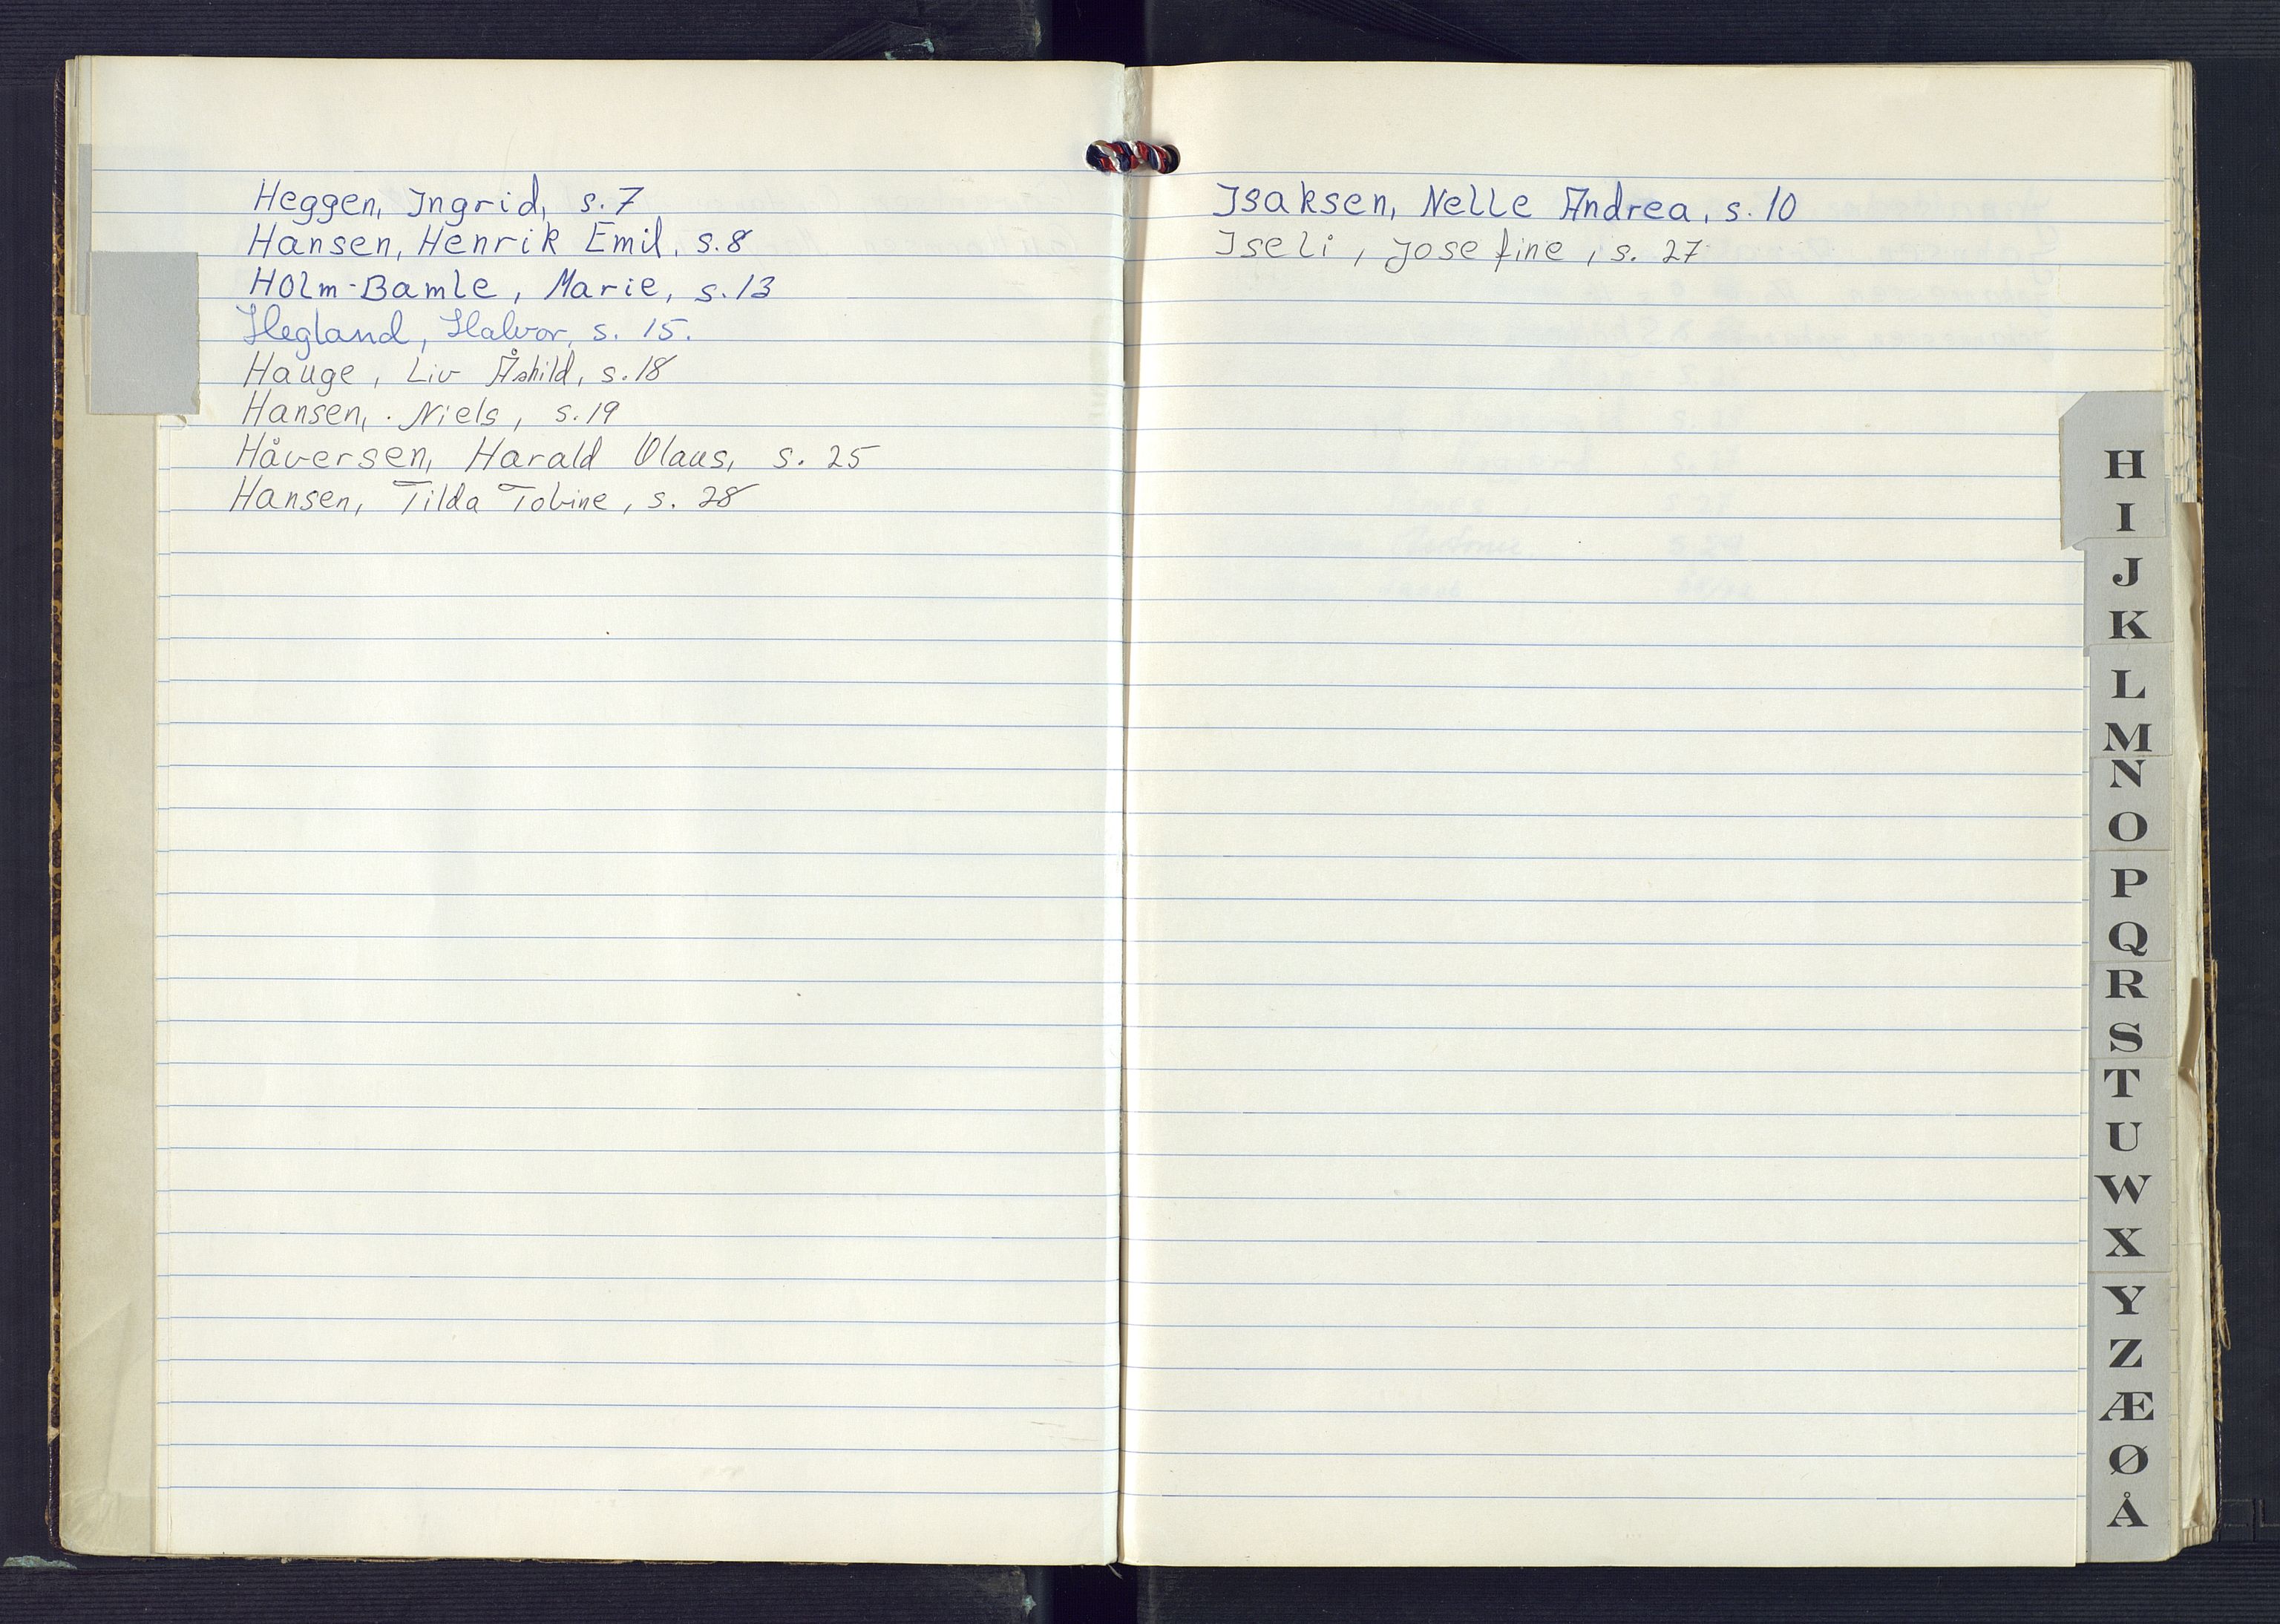 Heggen, Ingrid, s. 7
Hansen, Henrik Emil, s. 8
Holm-Bamle, Marie, s. 13
Hegland, Halvor, s. 15.
Hauge, Liv Åshild, s. 18
Hansen, Niels, s. 19
Håversen, Harald Olaus, s. 25
Hansen, Tilda Tobine, s. 28
Isaksen, Nelle Andrea, s. 10
Iseli, Josefine, s. 27
H
I
J
K
L
M
N
O
P
Q
R
S
T
U
W
X
Y
Z
Æ
Ø
Å